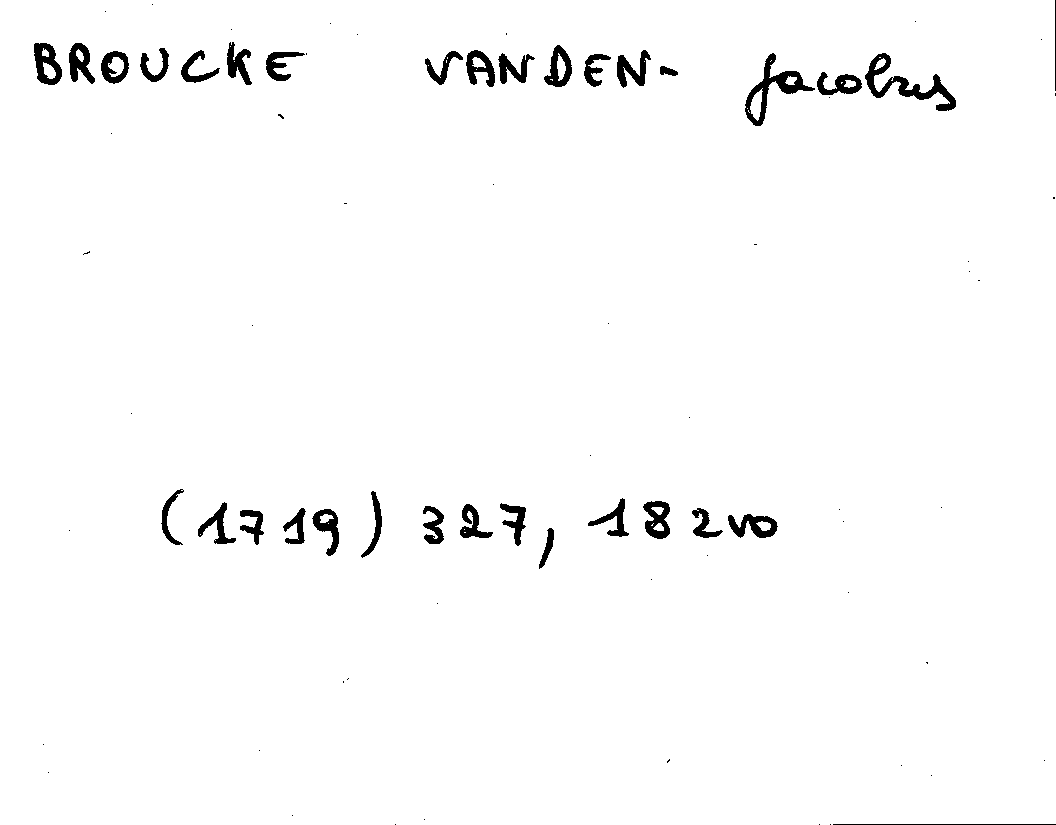 BROUCKE VANDEN- Jacobus
(1719) 327, 182vo